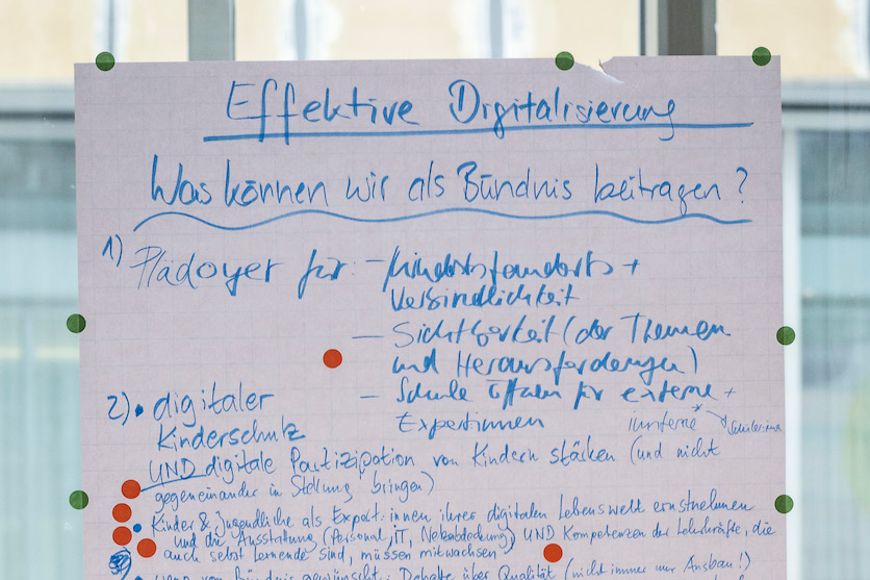 Effektive Digitalisierung
Was können wir als Bündnis beitragen?
1) Plädoyer für: - Mindeststandards +
Verbindlichkeit
- Sichtbarkeit (der Themen
und Herausforderungen)
- Schule öffnen für externe +
Expertinnen interne Schüler:innen
2) • digitaler
Kinderschutz
UND digitale Partizipation von Kindern stärken (und nicht
gegeneinander in Stellung bringen)
• Kinder & Jugendliche als Expert:innen ihrer digitalen Lebenswelt ernstnehmen
und die Ausstattung (Personal, IT, Netzabdeckung) UND Kompetenzen der Lehrkräfte, die
auch selbst Lernende sind, müssen mitwachsen
vom Bündnis gewünscht: Debatte über Qualität (nicht immer nur Ausbau!)